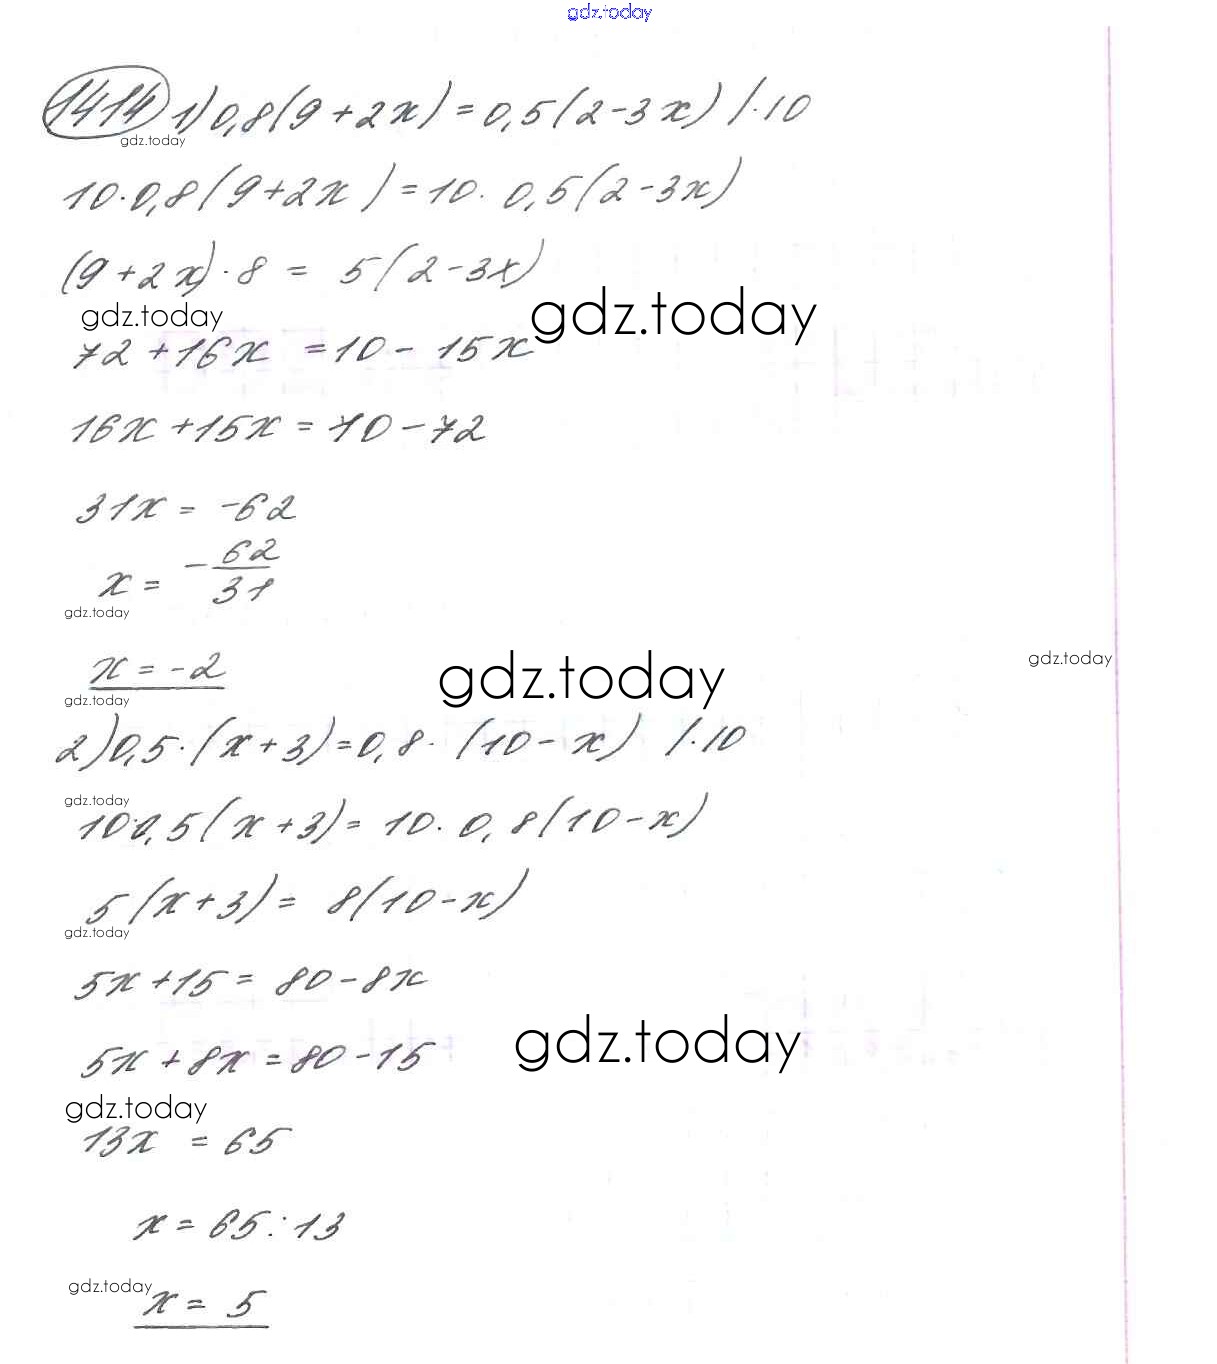 gdz.today
1414 1) 0,8(9+2x)=0,5(2-3x) |·10
gdz.today
10·0,8(9+2x)=10·0,5(2-3x)
(9+2x)·8 = 5(2-3x)
gdz.today gdz.today
72+16x =10-15x
16x+15x=10-72
31x= -62
x= -62/31
gdz.today
x=-2
gdz.today gdz.today
gdz.today
2) 0,5·(x+3)=0,8·(10-x) |·10
gdz.today
10·0,5(x+3)= 10·0,8(10-x)
5(x+3)= 8(10-x)
gdz.today
5x+15= 80-8x
5x+8x=80-15
gdz.today
gdz.today
13x =65
x=65:13
gdz.today
x= 5